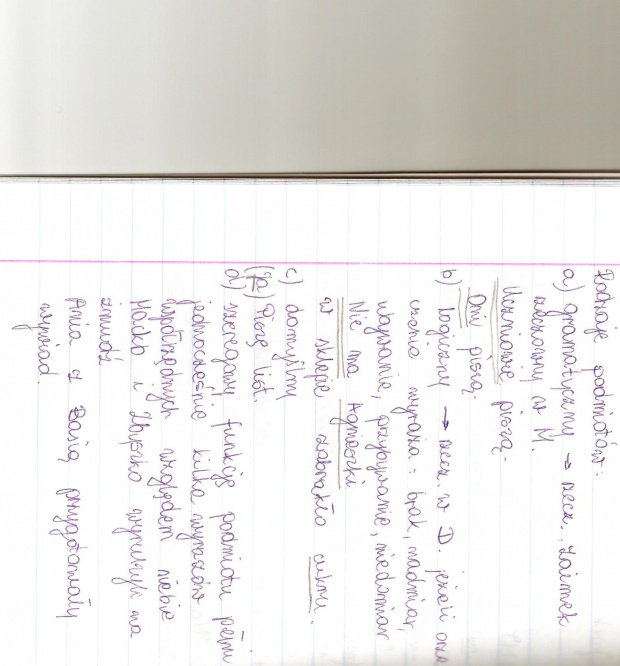 Rodzaje podmiotów:
a) gramatyczny → rzecz., zaimek
rzeczowny w M.
Uczniowie piszą.
Oni piszą.
b) logiczny → rzecz. w D. jeżeli orze
czenie wyraża: brak, nadmiar,
ubywanie, przybywanie, niedomiar
Nie ma Agnieszki
w sklepie zabrakło cukru.
c) domyślny
(Ja) Piszę list.
d) szeregowy funkcję podmiotu pełni
jednocześnie kilka wyrazów
współrzędnych względem siebie
Maćko i Zbyszko wyruszyli na
żmudź
Ania z Basią przygotowały
wywiad.